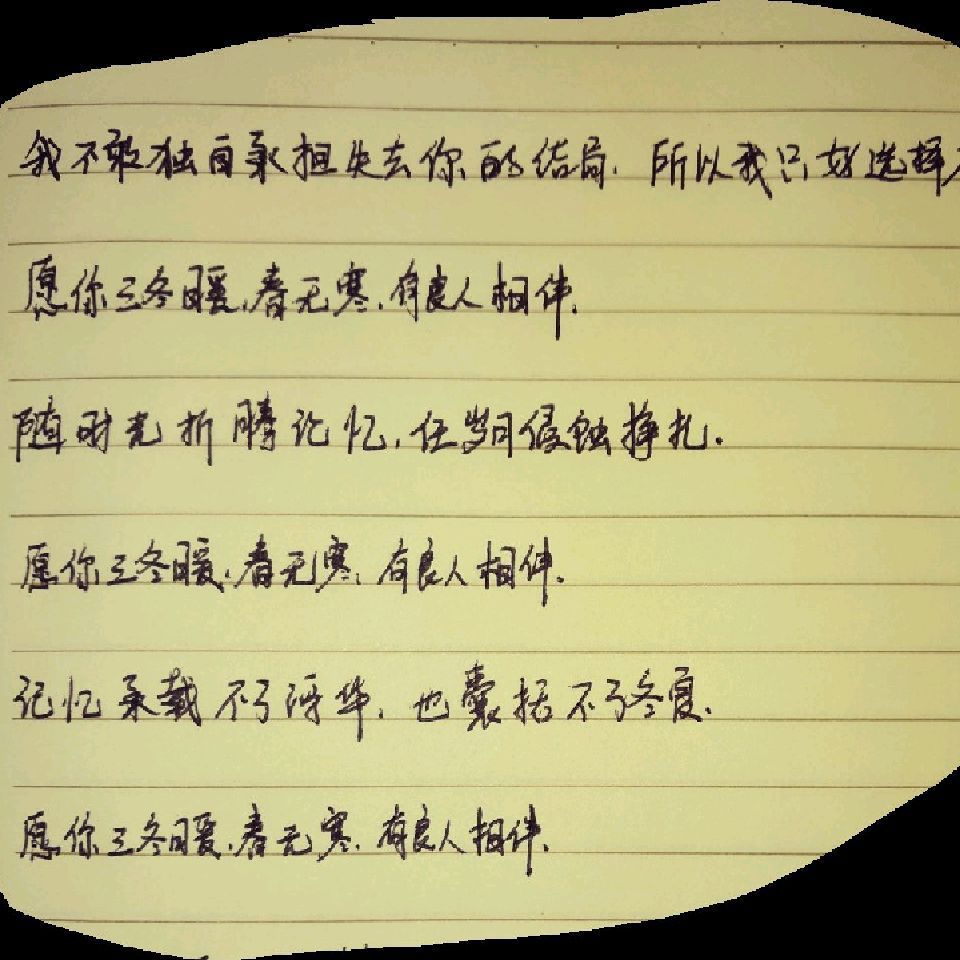 我不敢独自承担失去你的结局.所以我只好选择
愿你三冬暖.春无寒.有良人相伴.
随时光折腾记忆.任岁月侵蚀挣扎.
愿你三冬暖.春无寒.有良人相伴.
记忆承载不了浮华.也囊括不了冬夏.
愿你三冬暖.春无寒.有良人相伴.